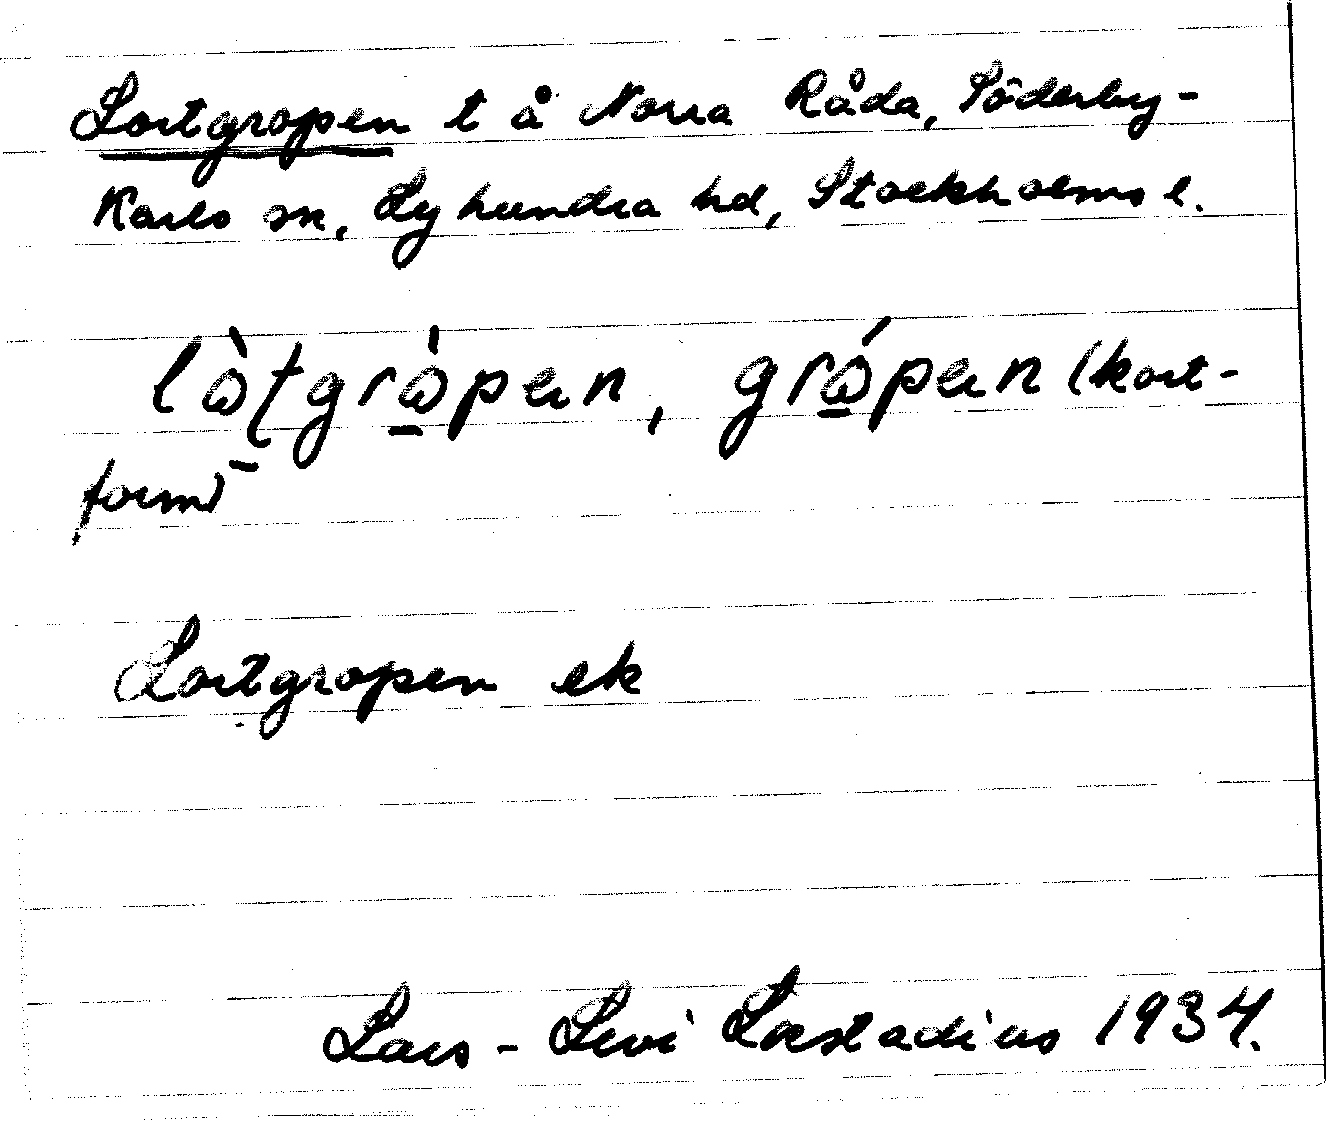 Lortgropen t å Norra Råda, Söderby-
Karls sn, Lyhundra hd, Stockholms l.
lòʈgrò̱pen, gró̱pen (kort-
form)
Lortgropen ek
Lars-Levi Læstadius 1934.